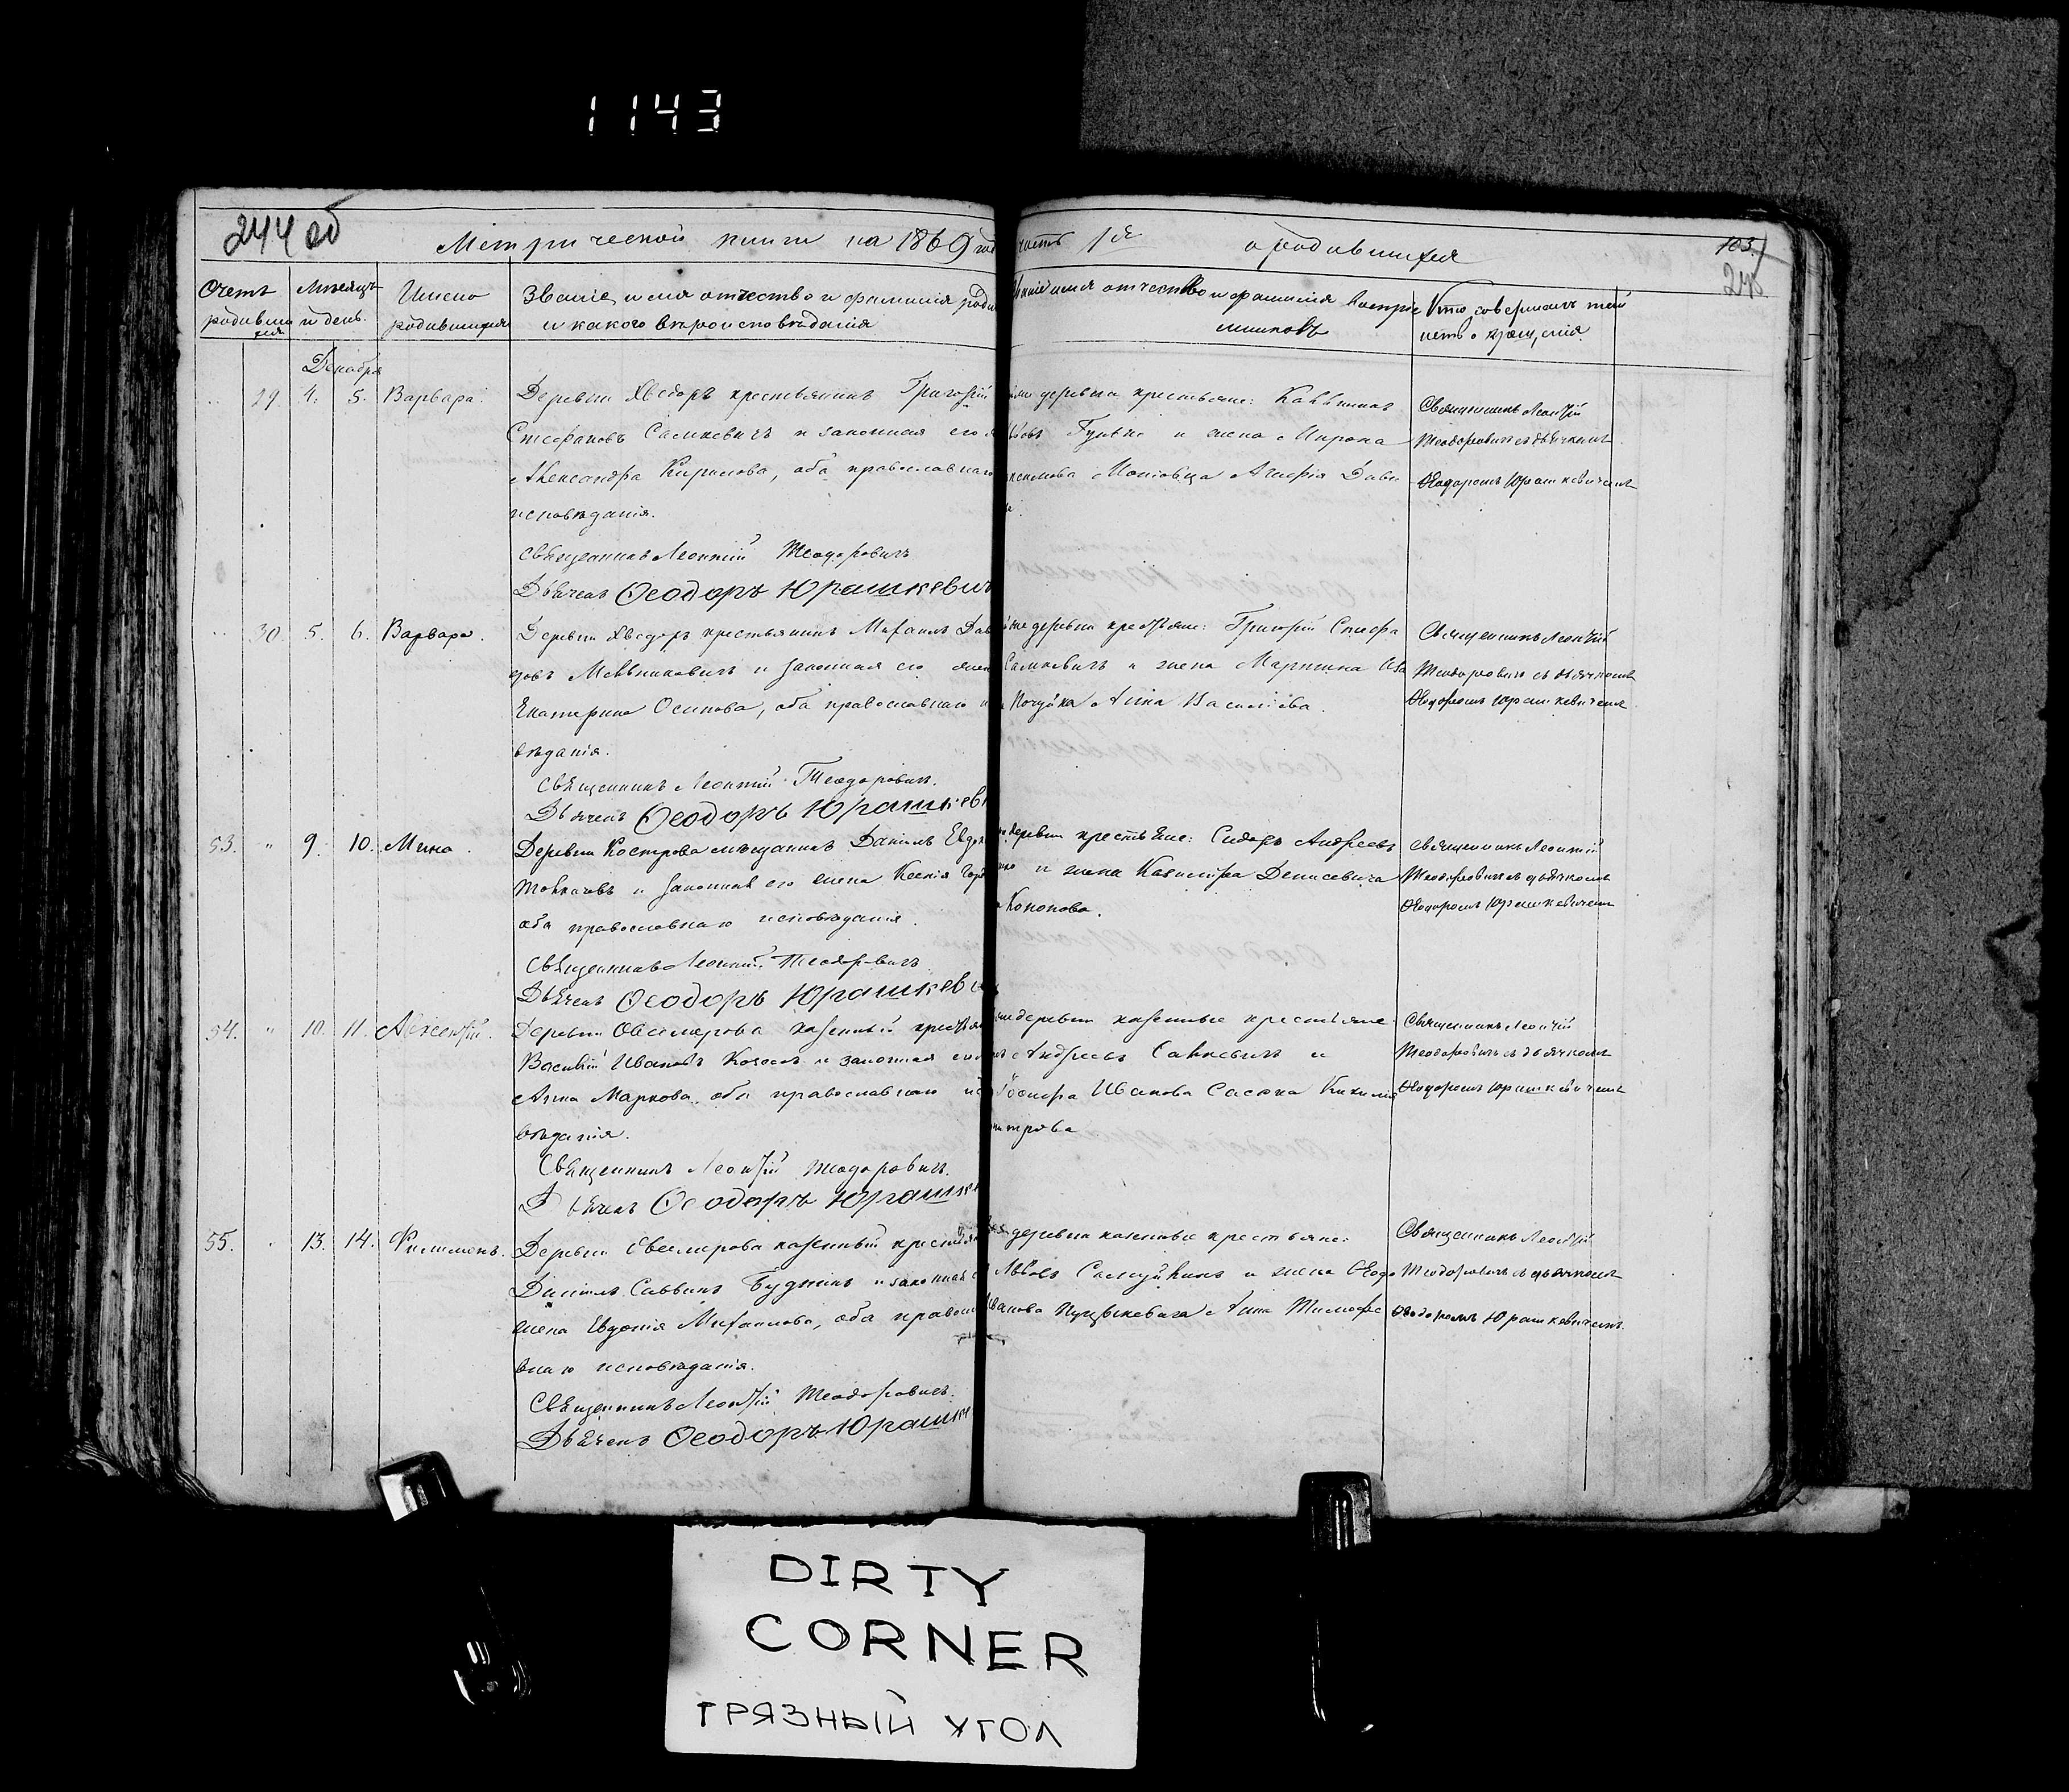 1143
244 об
Метрической книги на 1869 год
часть 1я о родившихся
103
Счетъ родивших
ся
Мѣсяцъ и день.
Имена родившихся
Званіе, имя отчество и фамилія роди
и какого вѣроисповѣданія
имя отчество и фамилія воспріе
мниковъ
Кто совершалъ таин
ство крещенія
Декабрь
29 4. 5. Варвара.
Деревни Хведоръ крестьянинъ Григорій
Стефановъ Самкевичъ и законная его
Александра Кирилова, оба православнаго
исповѣданія.
Священникъ Леонтій Теодоровичъ
Дьячекъ Ѳеодоръ Юрашкевич
деревни крестьяне:
и жена Мирона
Агафія Дави
Священникъ Леонтій
Теодоровичъ съ дьячкомъ
Ѳеодоромъ Юрашкевичемъ
30 5. 6. Варвара.
Деревни Хведоръ крестьянинъ Михаилъ Дав
довъ Мельниковичъ и законная его жен
Екатерина Осипова, оба православнаго и
вѣданія.
Священникъ Леонтій Теодоровичъ.
Дьячекъ Ѳеодоръ Юрашкев
деревни крестьяне: Григорій Стефа
Самкевичъ и жена Мартина Ива
Анна Васильева.
Священникъ Леонтій
Теодоровичъ съ дьячкомъ
Ѳеодоромъ Юрашкевичемъ
53. " 9. 10. Мина.
Деревни Кострова мѣщанинъ Даніилъ Евдо
Товкачовъ и законная его жена Ксенія
оба православнаго исповѣданія.
Священникъ Леонтій Теодоровичъ
Дьячекъ Ѳеодоръ Юрашкеви
деревни крестьяне: Сидоръ Андреевъ
и жена Казиміра Денисевича
Кононова.
Священникъ Леонтій
Теодоровичъ съ дьячкомъ
Ѳеодоромъ Юрашкевичемъ
54. " 10. 11. Авксентій.
Деревни Овсемерова казенный крестьян
Василій Ивановъ и законная его
Анна Маркова, оба православнаго ис
вѣданія.
Священникъ Леонтій Теодоровичъ.
Дьячекъ Ѳеодоръ Юрашке
деревни казенные крестьяне
Андреевъ Савкевичъ и
Иванова Сасюка
Священникъ Леонтій
Теодоровичъ съ дьячкомъ
Ѳеодоромъ Юрашкевичемъ
55. " 13. 14. Филимонъ.
Деревни Овсемерова казенный крестьян
Даніилъ Саввинъ Будникъ и законная
жена Евдокія Михаилова, оба правосл
внаго исповѣданія.
Священникъ Леонтій Теодоровичъ.
Дьячекъ Ѳеодоръ Юрашке
деревни казенные крестьяне:
и жена Ѳеодо
Иванова Анна Тимофе
Священникъ Леонтій
Теодоровичъ съ дьячкомъ
Ѳеодоромъ Юрашкевичемъ.
DIRTY
CORNER
ГРЯЗНЫЙ УГОЛ